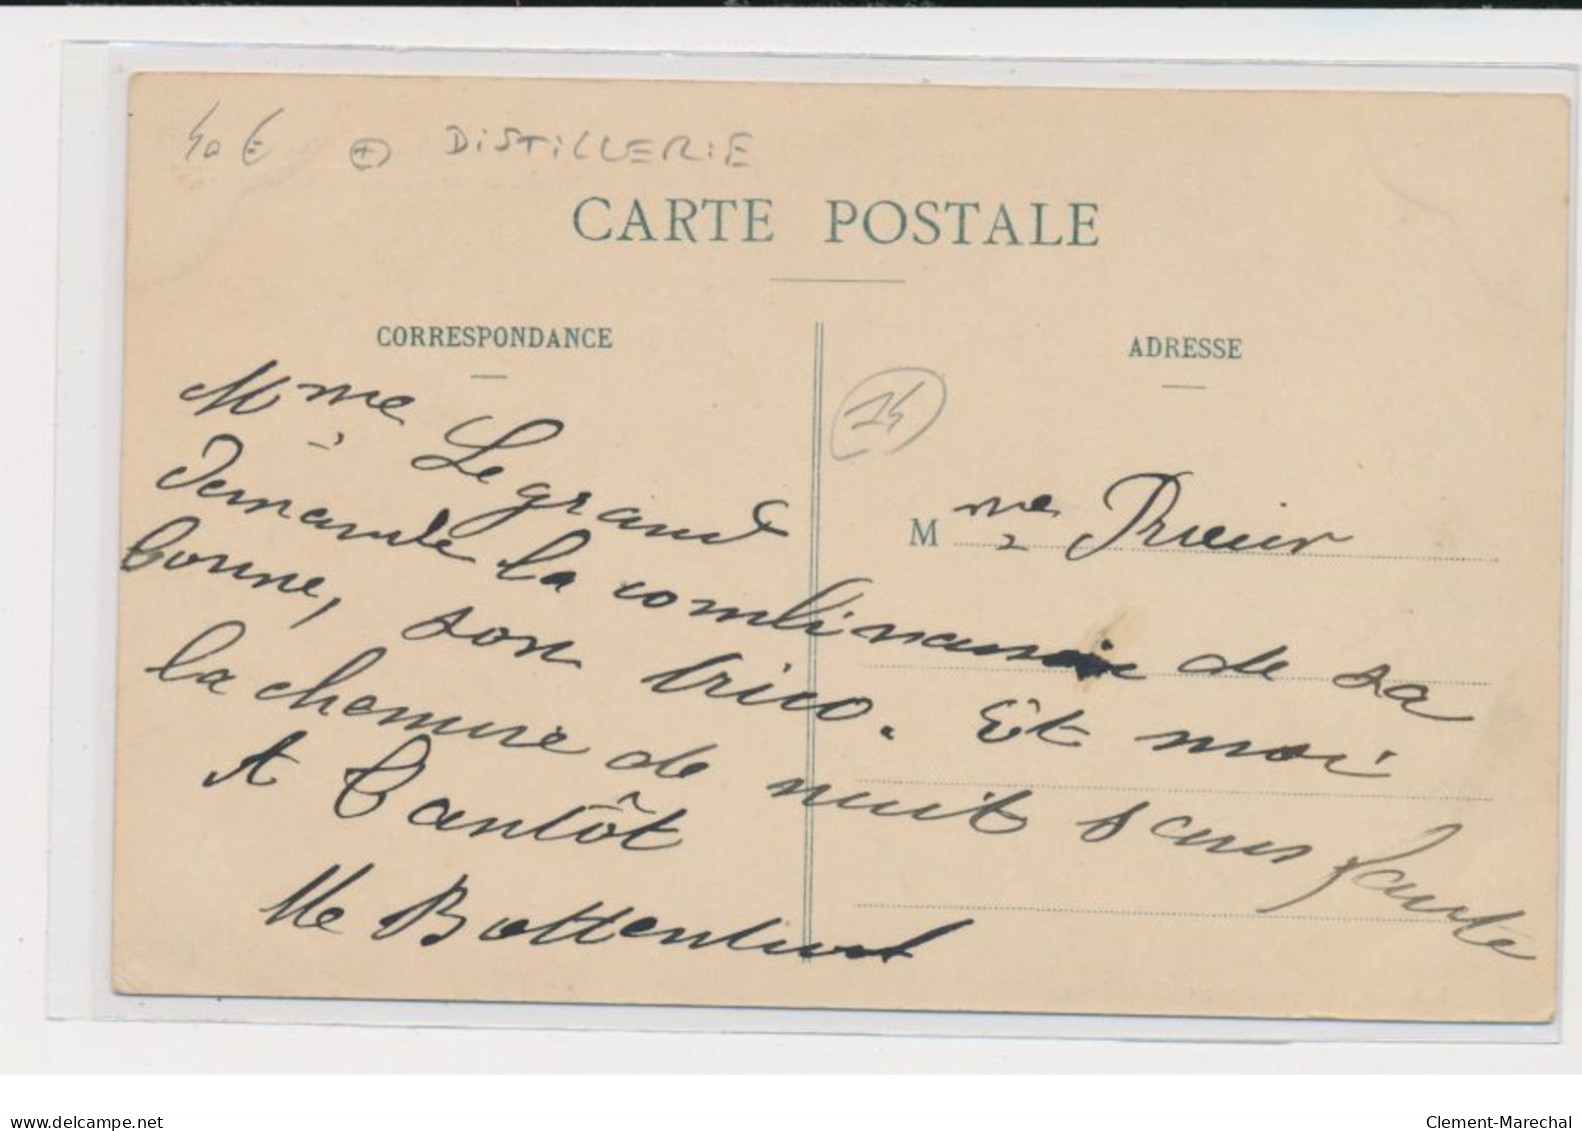 40 € + DISTILLERIE
CARTE POSTALE
CORRESPONDANCE
ADRESSE
14
Mme Legrand
Demande la combinaison de sa
bonne, son trico. Et moi
la chemise de nuit sans faute
A Tantôt
Mme Prieur
delcampe.net
Clement-Marechal